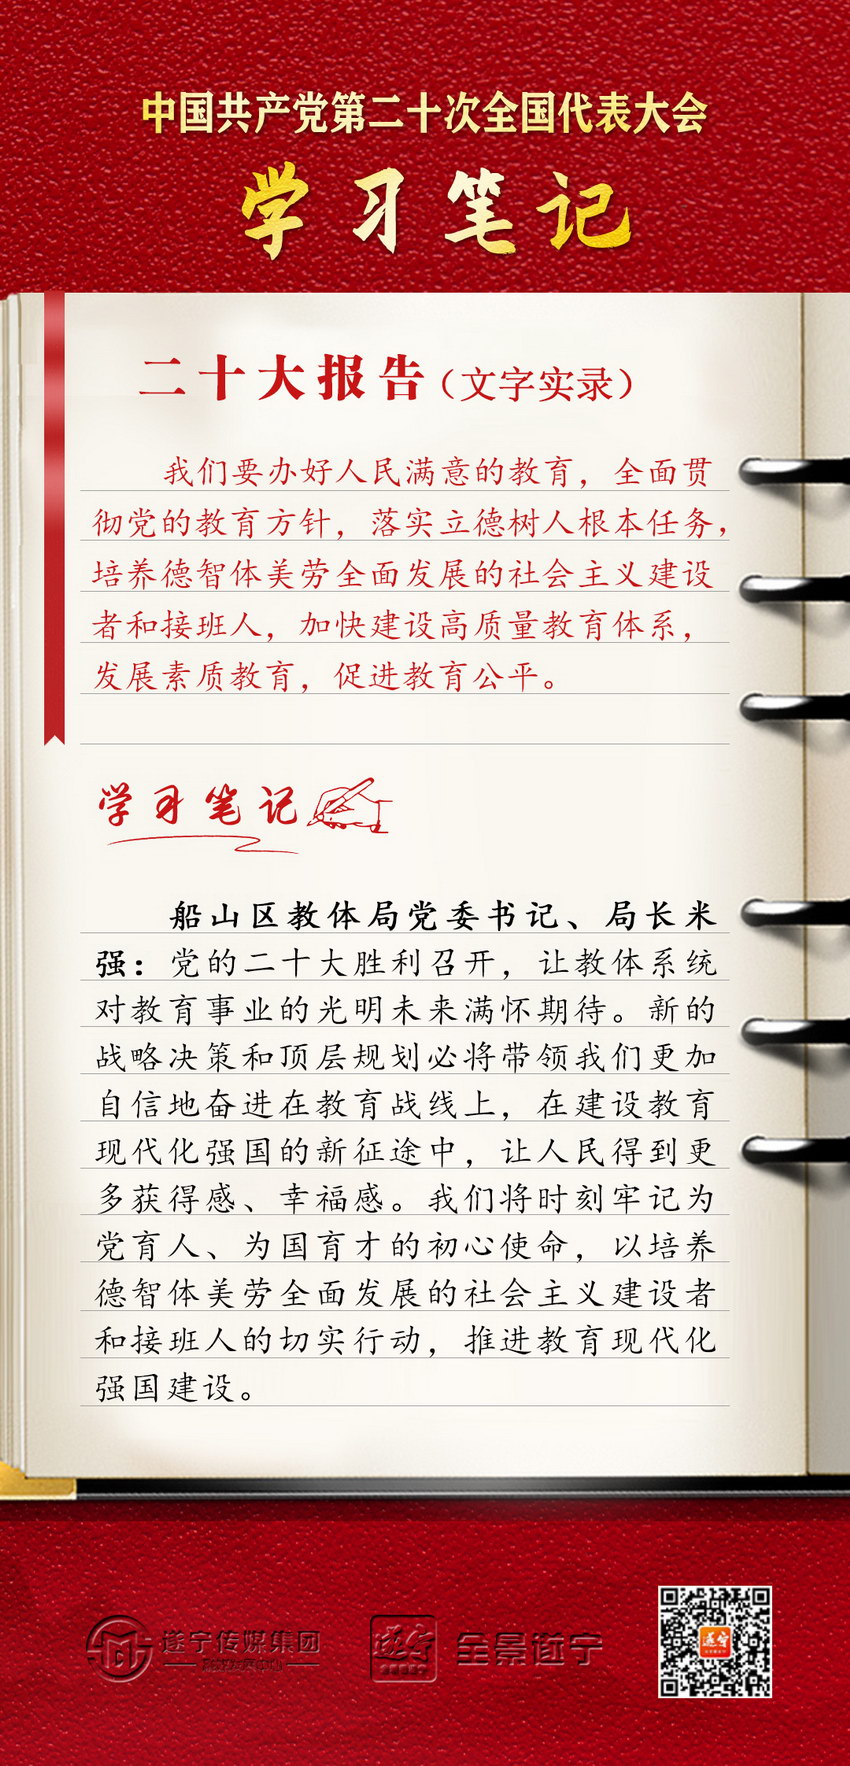 中国共产党第二十次全国代表大会
学习笔记
二十大报告（文字实录）
我们要办好人民满意的教育，全面贯
彻党的教育方针，落实立德树人根本任务，
培养德智体美劳全面发展的社会主义建设
者和接班人，加快建设高质量教育体系，
发展素质教育，促进教育公平。
学习笔记
船山区教体局党委书记、局长米
强：党的二十大胜利召开，让教体系统
对教育事业的光明未来满怀期待。新的
战略决策和顶层规划必将带领我们更加
自信地奋进在教育战线上，在建设教育
现代化强国的新征途中，让人民得到更
多获得感、幸福感。我们将时刻牢记为
党育人、为国育才的初心使命，以培养
德智体美劳全面发展的社会主义建设者
和接班人的切实行动，推进教育现代化
强国建设。
遂宁传媒集团
遂宁
全景遂宁
遂宁